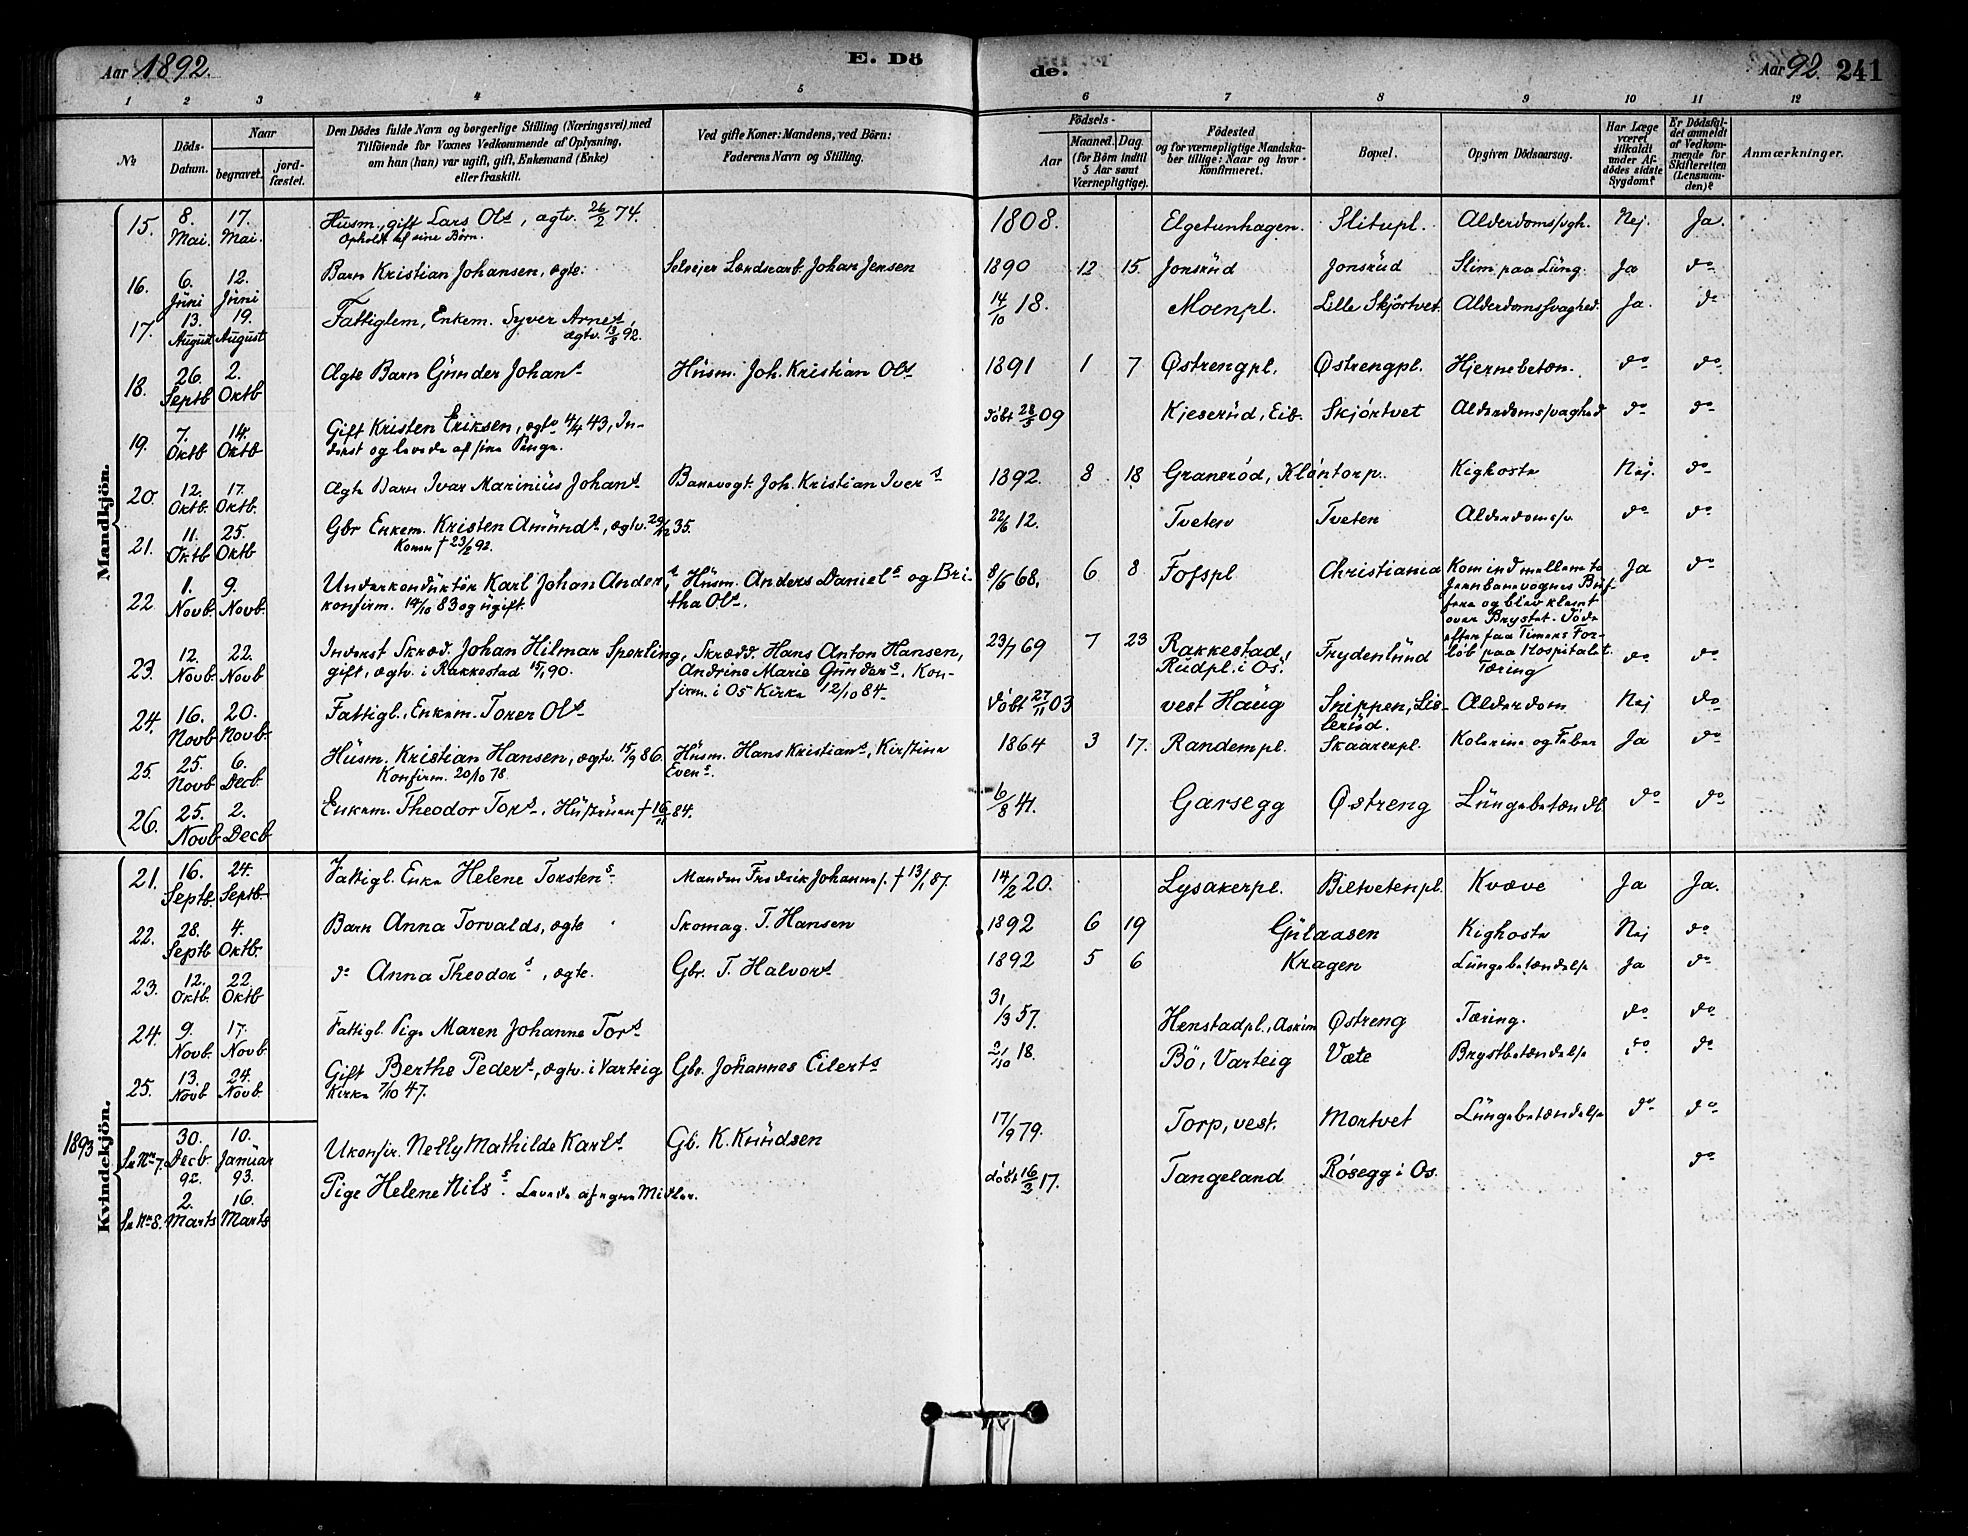 Aar 1892.
E. Dö
de.
Aar 92. 241
1 2 3 4 5 6 7 8 9 10 11 12
No
Döds-Datum.
Naar
begravet.
jord-fæstet.
Den Dödes fulde Navn og borgerlige Stilling (Næringsvei) med
Tilföiende for Voxnes Vedkommende af Oplysning,
om han (hun) var ugift, gift, Enkemand (Enke)
eller fraskilt.
Ved gifte Koner: Mandens, ved Börn:
Faderens Navn og Stilling.
Födsels-
Aar
Maaned. Dag.
(for Börn indtil
5 Aar samt
Værnepligtige).
Födested
og for værnepligtige Mandska-
ber tillige: Naar og hvor
konfirmeret.
Bopæl.
Opgiven Dödsaarsag.
Har Læge
været
tilkaldt
under Af-
dödes sidste
Sygdom?
Er Dödsfal-
det anmeldt
af Vedkom-
mende for
Skifteretten
(Lensman-
den)?
Anmærkninger.
Mandkjön.
15. 8. Mai. 17. Mai. Husm., gift Lars Ols, ægtv. 26/2 74. 1808. Elgetunhagen. Slitupl. Alderdomssvgh. Nej. Ja.
Opholdt af sine Børn.
16. 6. Juni 12. Juni Barn Kristian Johansen, ægte. Selvejer Lændsearb. Johan Jensen 1890 12 15. Jonsrud Jonsrud Slim paa Lung. Ja do
17. 13. August 19. August Fattiglem, Enkem. Syver Arnes, 14/10 18. Moenpl. Lille Skjørtvet. Alderdomssvaghed. Ja. do
ægtv. 13/8 92.
18. 26. Septb 2. Oktb Ægte Barn Gunder Johans Husm. Joh. Kristian Ols 1891 1 7 Østrengpl. Østrengpl. Hjernebetæn. do do
19. 7. Oktb 14. Oktb Gift Kristen Eriksen, ægtv 4/4 43, In- døbt 28/5 09 Kjeserud, Eib. Skjørtvet Alderdomssvaghed do do
derst og levede af sine Penge.
20. 12. Oktb. 17. Oktb. Ægte Barn Ivar Marinius Johans Banevogt. Joh. Kristian Ivers 1892. 8 18 Granerød, Kløntorp. Kighoste Nej. do
21. 11. Oktb 25. Oktb Gbr Enkem. Kristen Amunds, ægtv. 29/12 35. 22/6 12. Tveten Tveten Alderdomssv. do do
Konen † 23/2 92.
22. 1. Novb. 9. Novb. Underkonduktør Karl Johan Anders, Husm. Anders Daniels og Bri- 8/6 68. 6 8 Fosspl Christiania Kom ind mellem to Ja do
konfirm. 14/10 83 og ugift. tha Ols. Jernbanevognes Buf-
fere og blev klemt
over Brystet. Døde
efter faa Timers For-
løb paa Hospitalet.
23. 12. Novb 22. Novb Inderst Skræd. Johan Hilmar Sperling, Skrædd. Hans Anton Hansen, 23/7 69 7 23 Rakkestad, Frydenlund Tæring do do
gift, ægtv. i Rakkestad 15/1 90. Andrine Marie Gunders. Kon- Rudpl. i Os.
firm. i Os Kirke 12/10 84.
24. 16. Novb 20. Novb. Fattigl., Enkem. Torer Ols døbt 27/11 03 vest Haug Snippen, Lis- Alderdom Nej do
lerud.
25. 25. Novb 6. Decb Husm. Kristian Hansen, ægtv. 15/9 86. Husm. Hans Kristians, Kirstine 1864 3 17. Randempl. Skaarerpl. Kolerine og Feber Ja do
Konfirm. 20/10 78. Evens.
26. 25. Novb 2. Decb Enkem. Theodor Tors. Hustruen † 16/11 84. 6/8 41. Garsegg Østreng Lungebetændl do do
Kvindekjön.
21. 16. Septb. 24. Septb. Fattigl. Enke Helene Torstens. Manden Fredrik Johannes. † 13/1 87. 14/2 20. Lysakerpl. Biltvetenpl. Kvæve Ja Ja.
22. 28. Septb 4. Oktb. Barn Anna Torvalds, ægte Skomag. T. Hansen 1892 6 19 Gulaasen Kighoste Nej do
23. 12. Oktb. 22. Oktb do Anna Theodors, ægte. Gbr. T. Halvors 1892 5 6 Kragen Lungebetændelse Ja do
24. 9. Novb. 17. Novb. Fattigl. Pige Maren Johanne Tors 31/3 57. Henstadpl., Askim Østreng Tæring. do do
25. 13. Novb 24. Novb. Gift Berthe Peders, ægtv. i Varteig Gbr. Johannes Eilerts 2/10 18. Bö, Varteig Væte Brystbetændelse do do
Kirke 7/10 47.
1893
Se Nr 7. 30. Decb 92. 10. Januar 93. Ukonfir. Nelly Mathilde Karls. Gb. K. Knudsen 17/9 79. Torp, vest. Mortvet Lungebetændelse do do
Se Nr 8. 2. Marts 16. Marts Pige Helene Nils. Levede af egne Midler. døbt 16/3 17. Tangeland Røsegg i Os. do